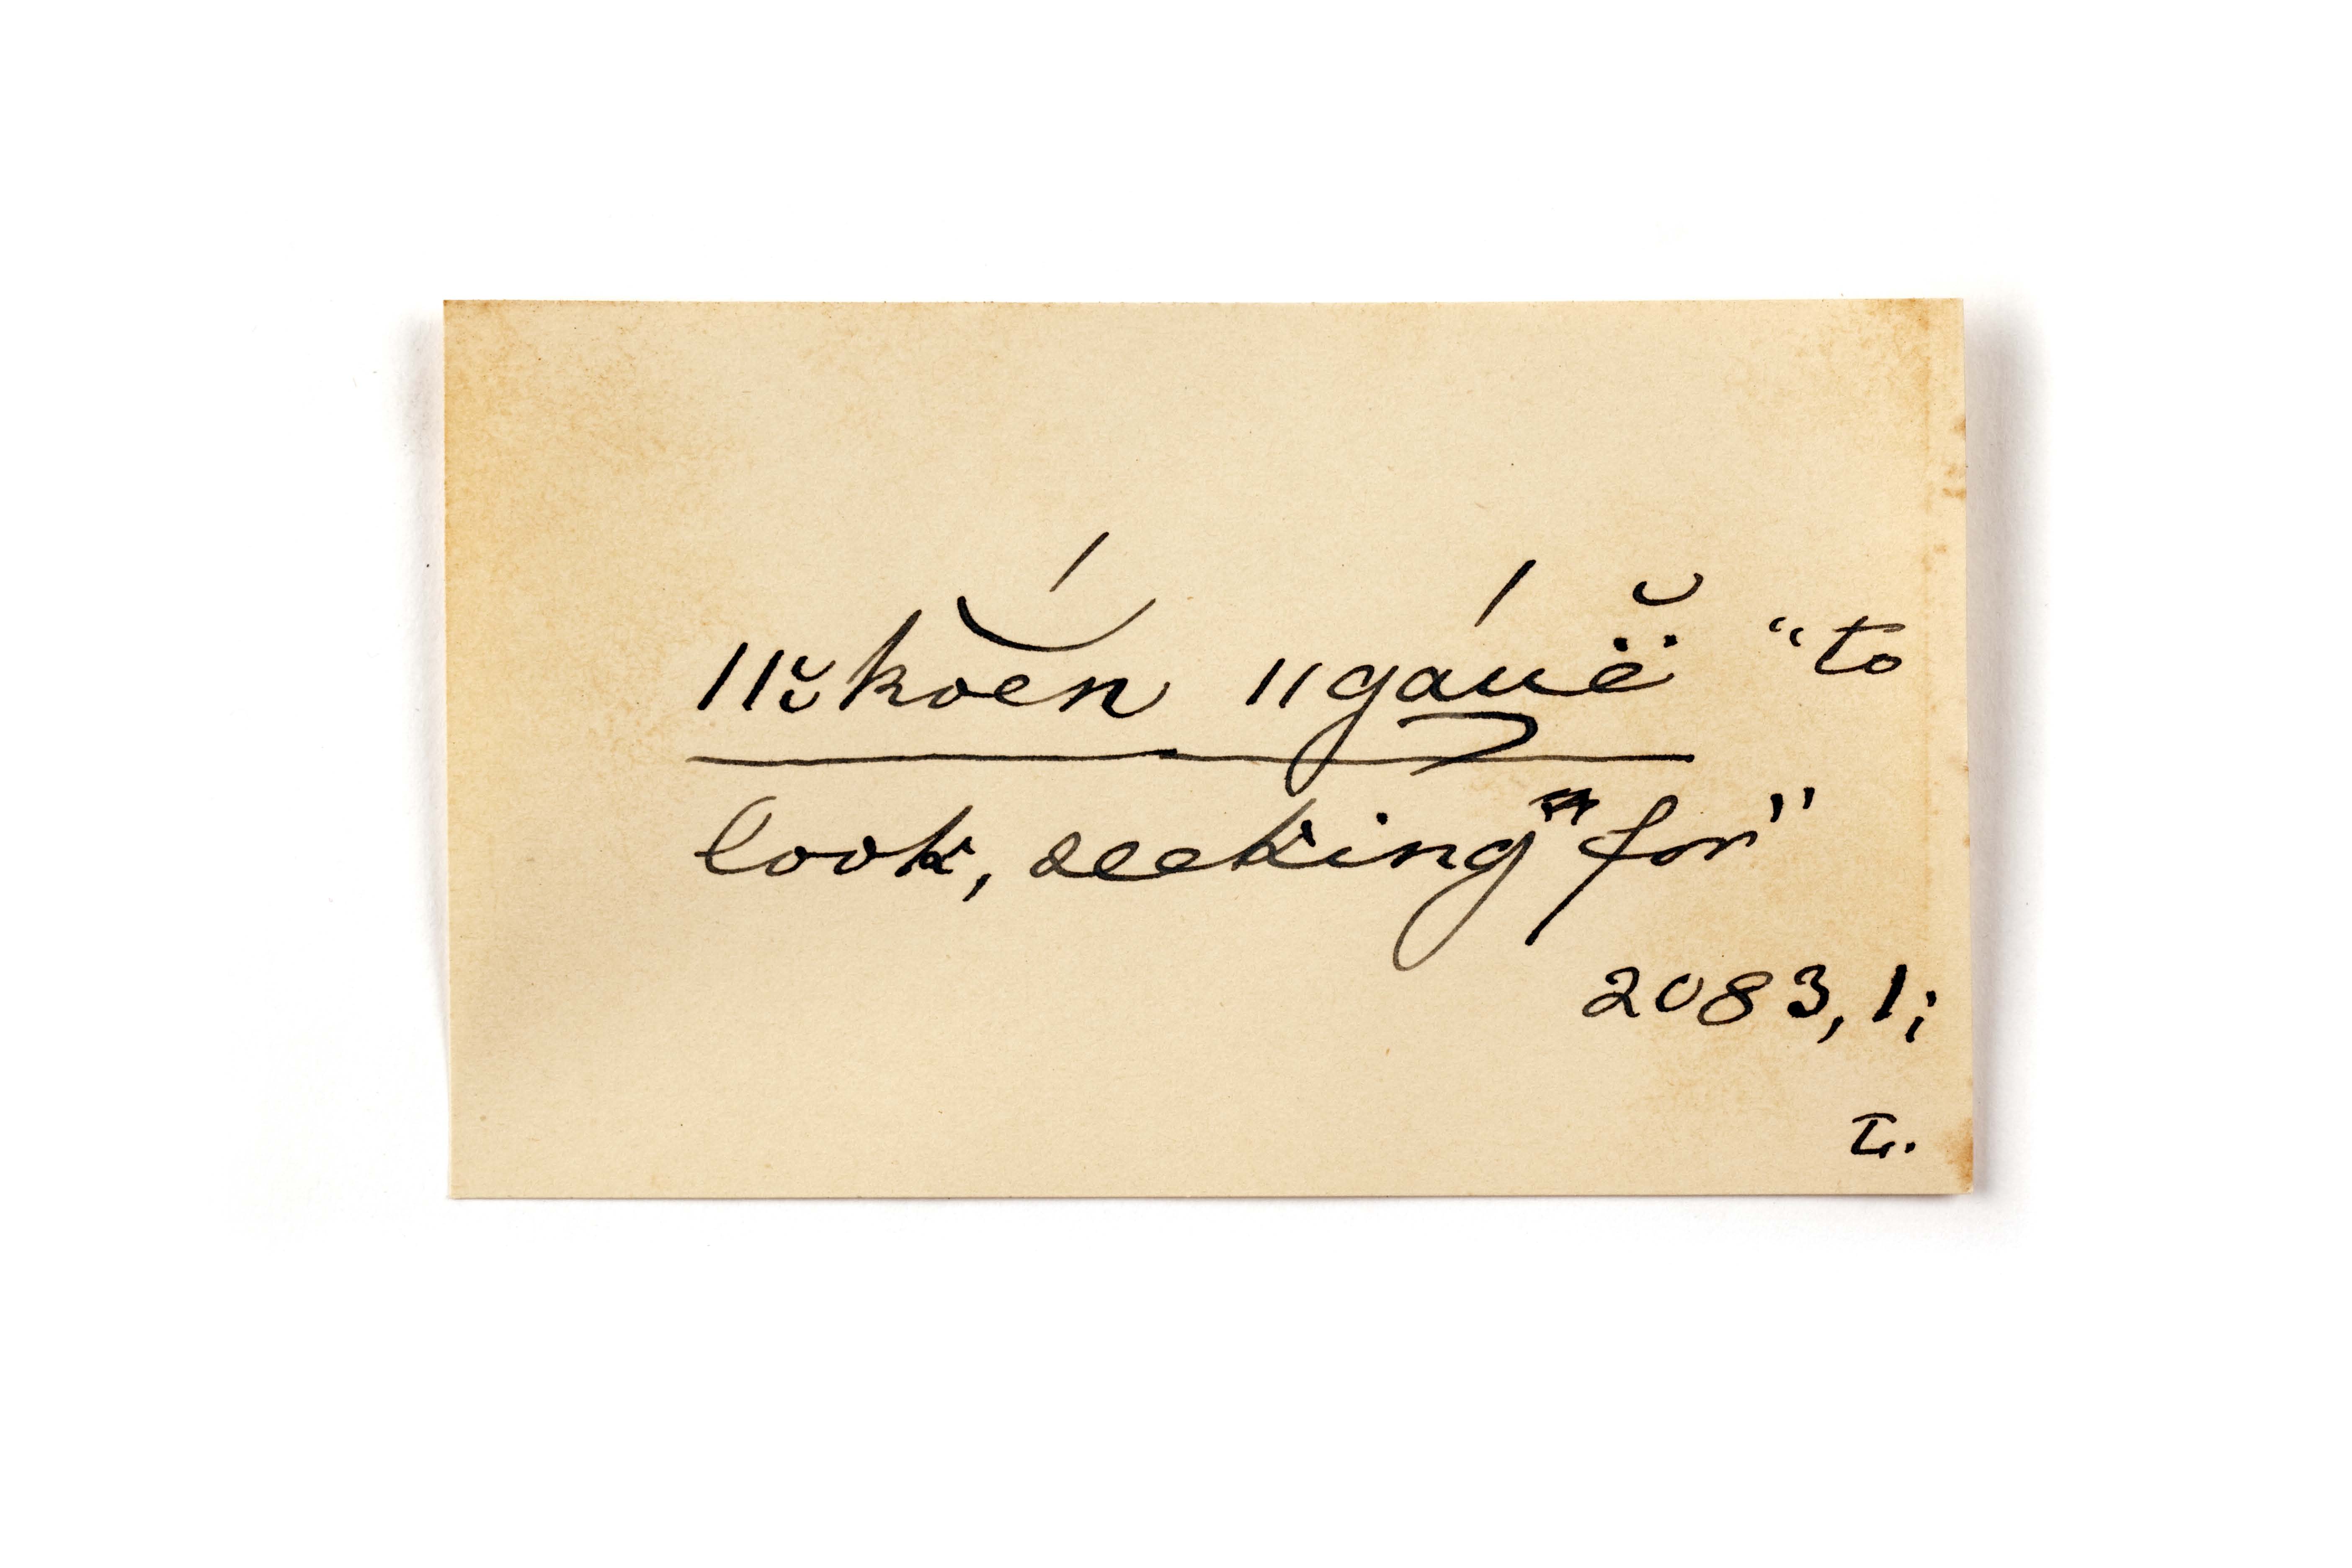 ǁkoĕ́n ǁgáuĕ̈ "to
look, seeking" for"
2083, 1;
L.